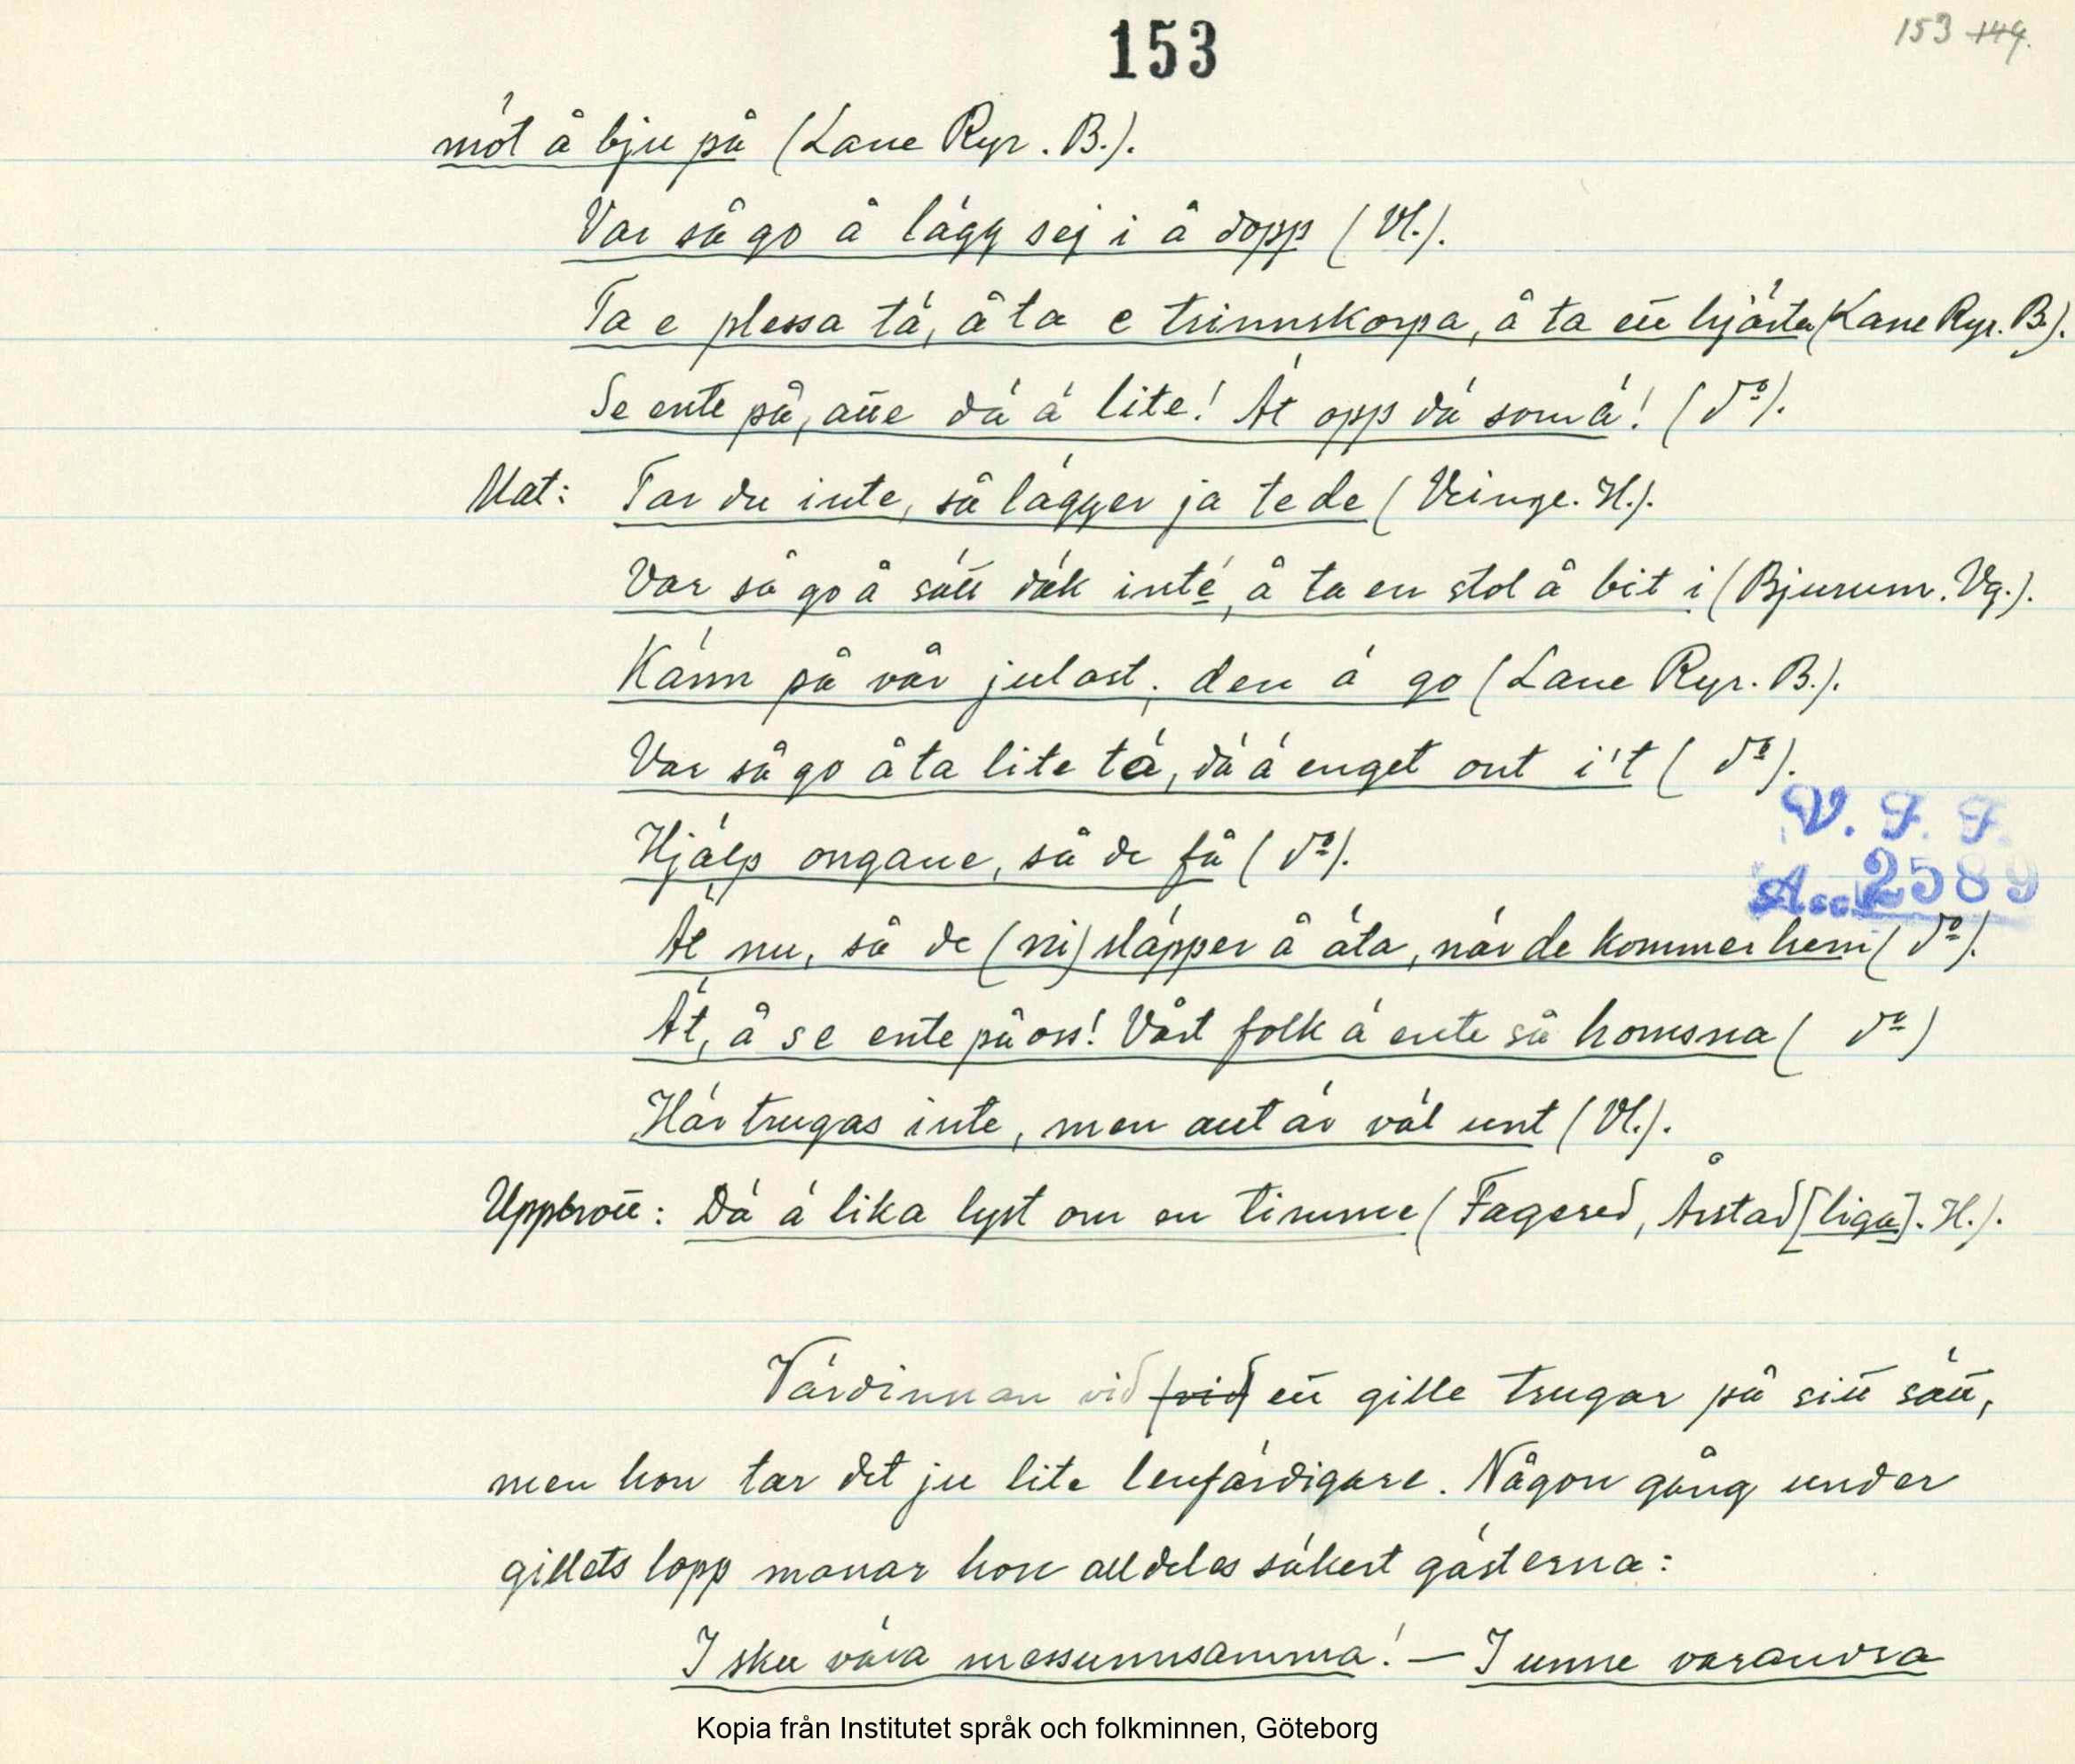 153
153 149.
möt å bju på (Lane Ryr. B.).
Var så go å lägg sej i å dopp (Vl.).
Ta e plessa tä, å ta e trinnskorpa, å ta ett hjärta (Lane Ryr. B.).
Se ente på, att e dä ä lite! Ät opp dä som ä! (do).
Mat: Tar du inte, så lägger ja te de (Veinge. H.).
Var så go å sätt däk inté, å ta en stol å bit i (Bjurum. Vg.).
Känn på vår julost, den ä go (Lane Ryr. B.).
Var så go å ta lite tä, dä ä enget ont i't (do).
V. F. F.
Hjälp ongane, så de få (do).
Acc. 2589
Ät nu, så de (ni) släpper å äta, när de kommer hem (do).
Ät, å se ente på oss! Vårt folk ä ente så homsna (do)
Här trugas inte, men ant är väl unt (Vl.).
Uppbrott: Dä ä lika lyst om en timme (Fagered, Årstad [liga]. H.).
Värdinnan vid (vid) ett gille trugar på sitt sätt,
men hon tar det ju lite lenfärdigare. Någon gång under
gillets lopp manar hon alldeles säkert gästerna:
I sku våra messunnsamma! — I unne varandra
Kopia från Institutet språk och folkminnen, Göteborg